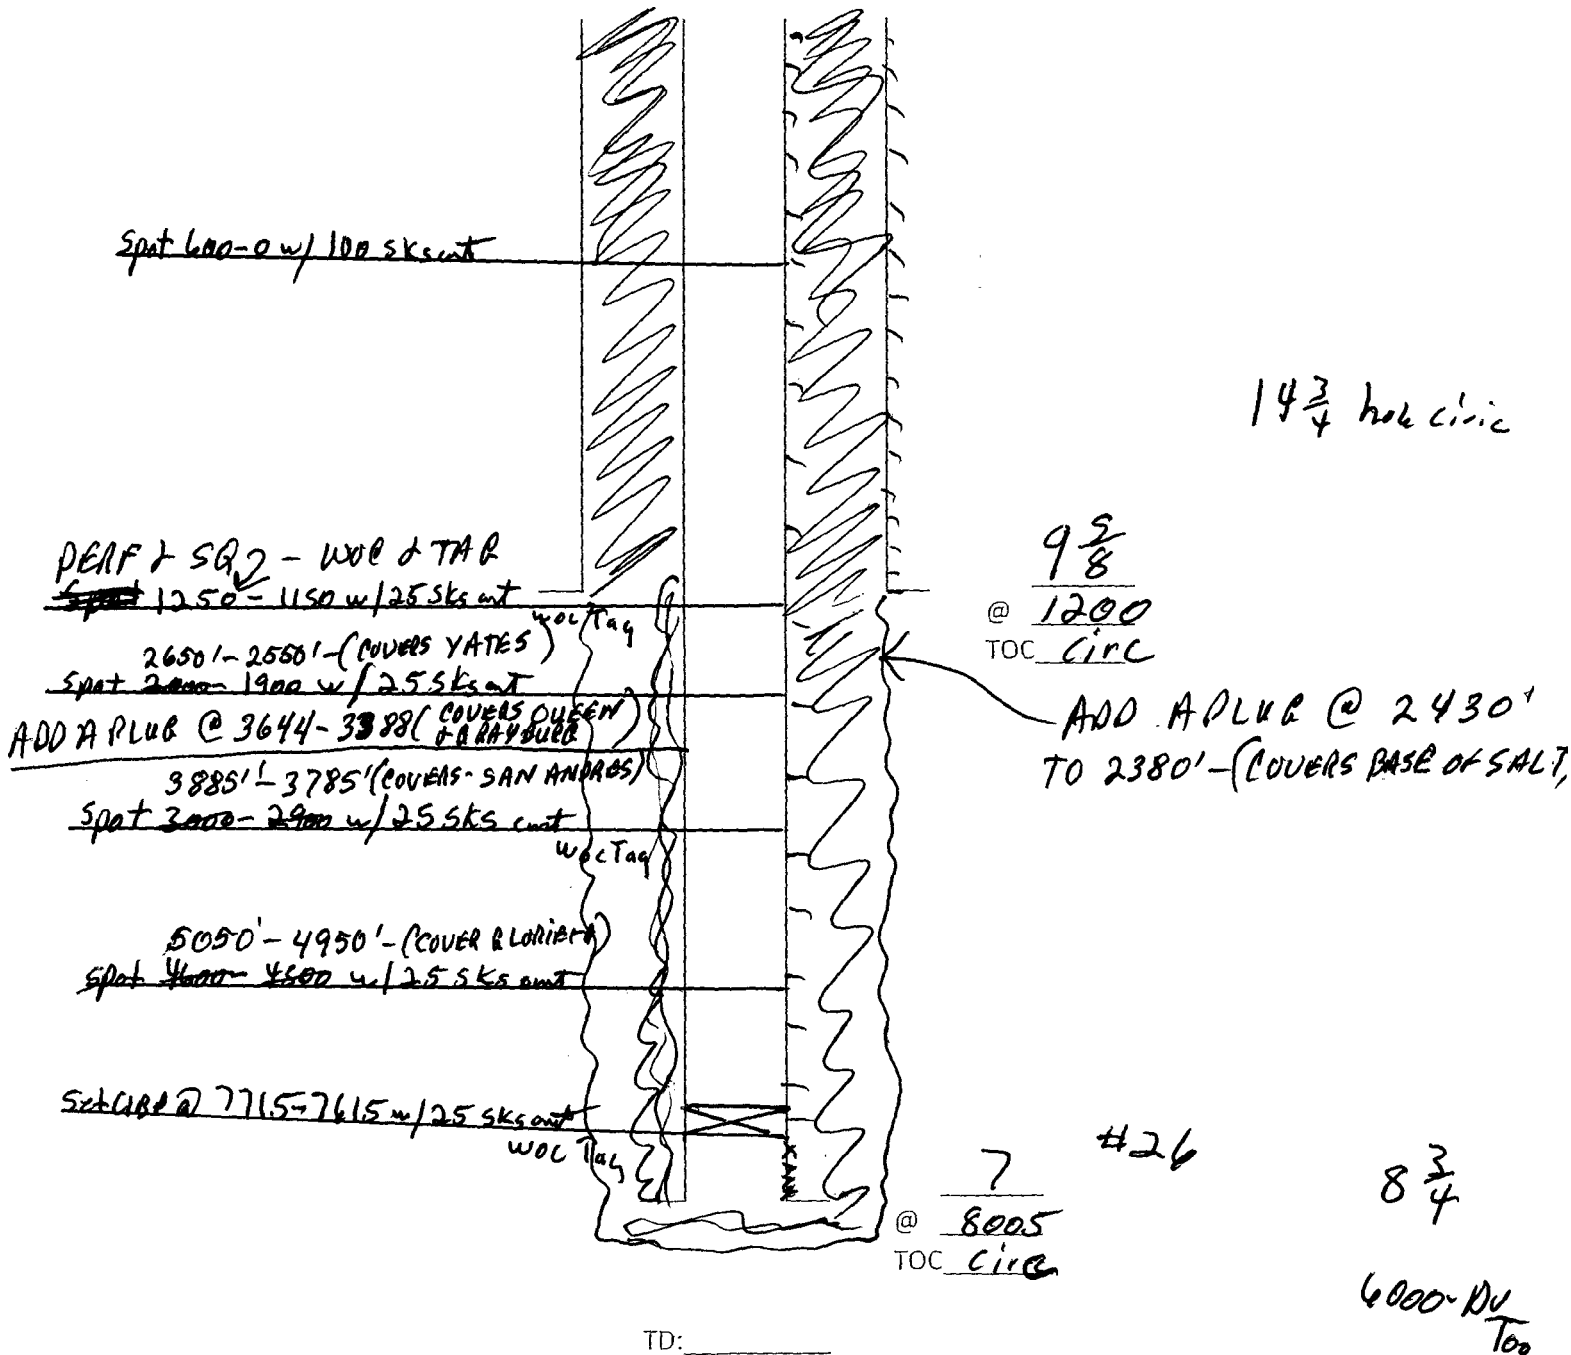 Spot 600-0 w/ 100 sks cmt
14 3/4 hole circ
PERF & SQZ - WOC & TAG
Spot 1250'-1150 w/25 sks cmt
WOC Tag
9 5/8
@ 1200
TOC circ
2650'-2550'-(COVERS YATES)
Spot 2000-1900 w/25 sks cmt
ADD A PLUG @ 3644-3388 (COVERS QUEEN
& GRAYBURG)
ADD A PLUG @ 2430'
TO 2380'-(COVERS BASE OF SALT,
3885'-3785' (COVERS-SAN ANDRES)
Spot 3000-2900 w/25 SKS cmt
WOC Tag
5050'-4950'-(COVER GLORIETA)
Spot 4600-4500 w/25 SKS cmt
Set CIBP @ 7715-7615 w/25 sks cmt
WOC Tag
7
#26
8 3/4
@ 8005
TOC circ
6000-DV
Too
TD: